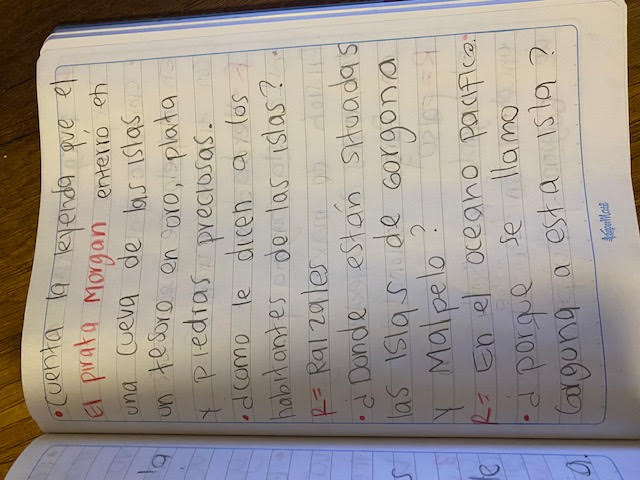 • Cuenta la leyenda que el
El pirata Morgan enterrio en
una cueva de las islas
un tesoro en oro, plata
y piedras preciosas.
• ¿como le dicen a los
habitantes de las islas?
R= Raizales
• ¿Donde están situadas
las islas de Gorgona
y Malpelo?
R= En el oceano pacifico.
• ¿porque se llamo
Gorgona a esta isla?
la
s
le
a.